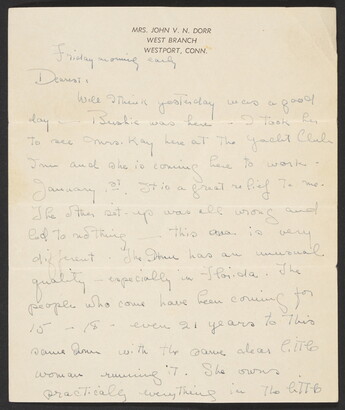 MRS. JOHN V. N. DORR
WEST BRANCH
WESTPORT, CONN.
Friday morning early
Dearest,
Well I think yesterday was a good
day — was here — I took her
to see Mrs. Kay here at the Yacht Club
Inn and she is coming here to work -
January 3rd. It is a great relief to me.
The other set-up was all wrong and
led to nothing — this one is very
different. The Inn has an unusual
quality — especially in Florida. The
people who come have been coming for
10 - 15 - even 21 years to this
same Inn with the same dear little
woman running it. She owns
practically everything in the little